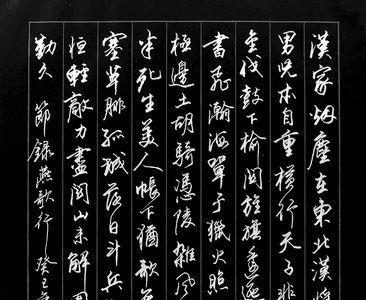 漢家烟塵在東北漢將
男兒本自重橫行天子非
金伐鼓下榆関旌旆逶迤
書飛瀚海單于獵火照
極邊土胡騎憑陵雜風
半死生美人帳下猶歌
塞草腓孤城落日斗兵
恒輕敵力盡関山未解圍
勤久 節錄燕歌行 癸巳